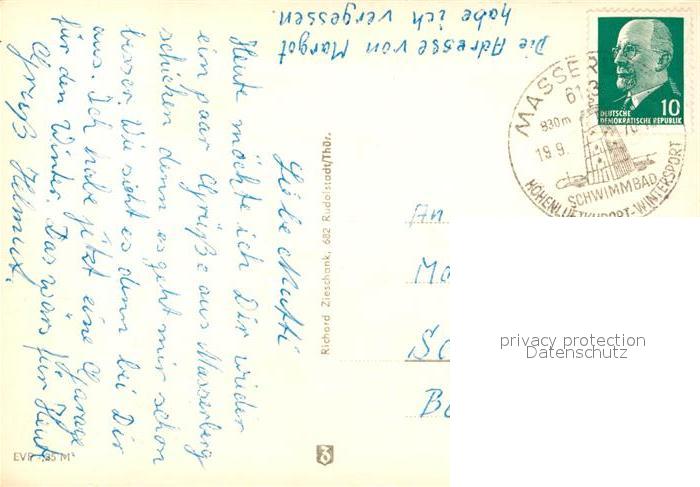 Die Adresse von Margot
habe ich vergessen.
Liebe Mutti
Heute möchte ich Dir wieder
ein paar Grüße aus Masserberg
schicken denn es geht mir schon
besser. Wie sieht es denn bei Dir
aus. Ich habe jetzt eine Garage
für den Winter. Das wärs für Heute
Gruß Helmut.
Richard Zieschank, 682 Rudolstadt/Thür.
EVP -,25 M
DEUTSCHE
DEMOKRATISCHE REPUBLIK
10
MASSE
830m
19.9.
SCHWIMMBAD
HÖHENLUFTKURORT-WINTERSPORT
An
Ma
Sc
Be
privacy protection
Datenschutz